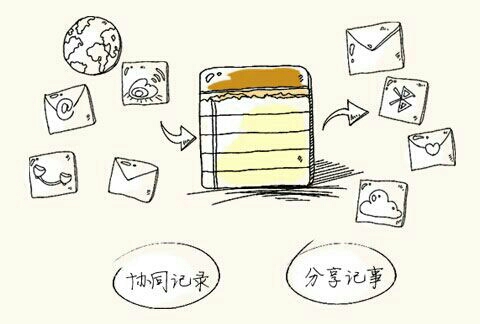 协同记录
分享记事